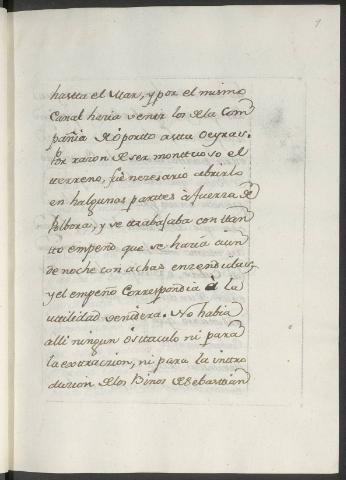 9
hastta el Mar, y por el mismo
Canal hacia venir los de la Com
pañia de oportto a su Oeyras.
Por razon de ser monttuoso el
tterreno, fuè necesario abrirlo
en halgunos parttes à fuerza de
Polbora, y se ttrabajaba con ttan
tto empeño que se hacia aun
de noche con achas enzendidas,
y el empeño Correspondia à la
uttilidad venidera. No habia
alli ningun osttaculo ni para
la exttraczion, ni para la inttro
duzion de los Binos de Sebasttian